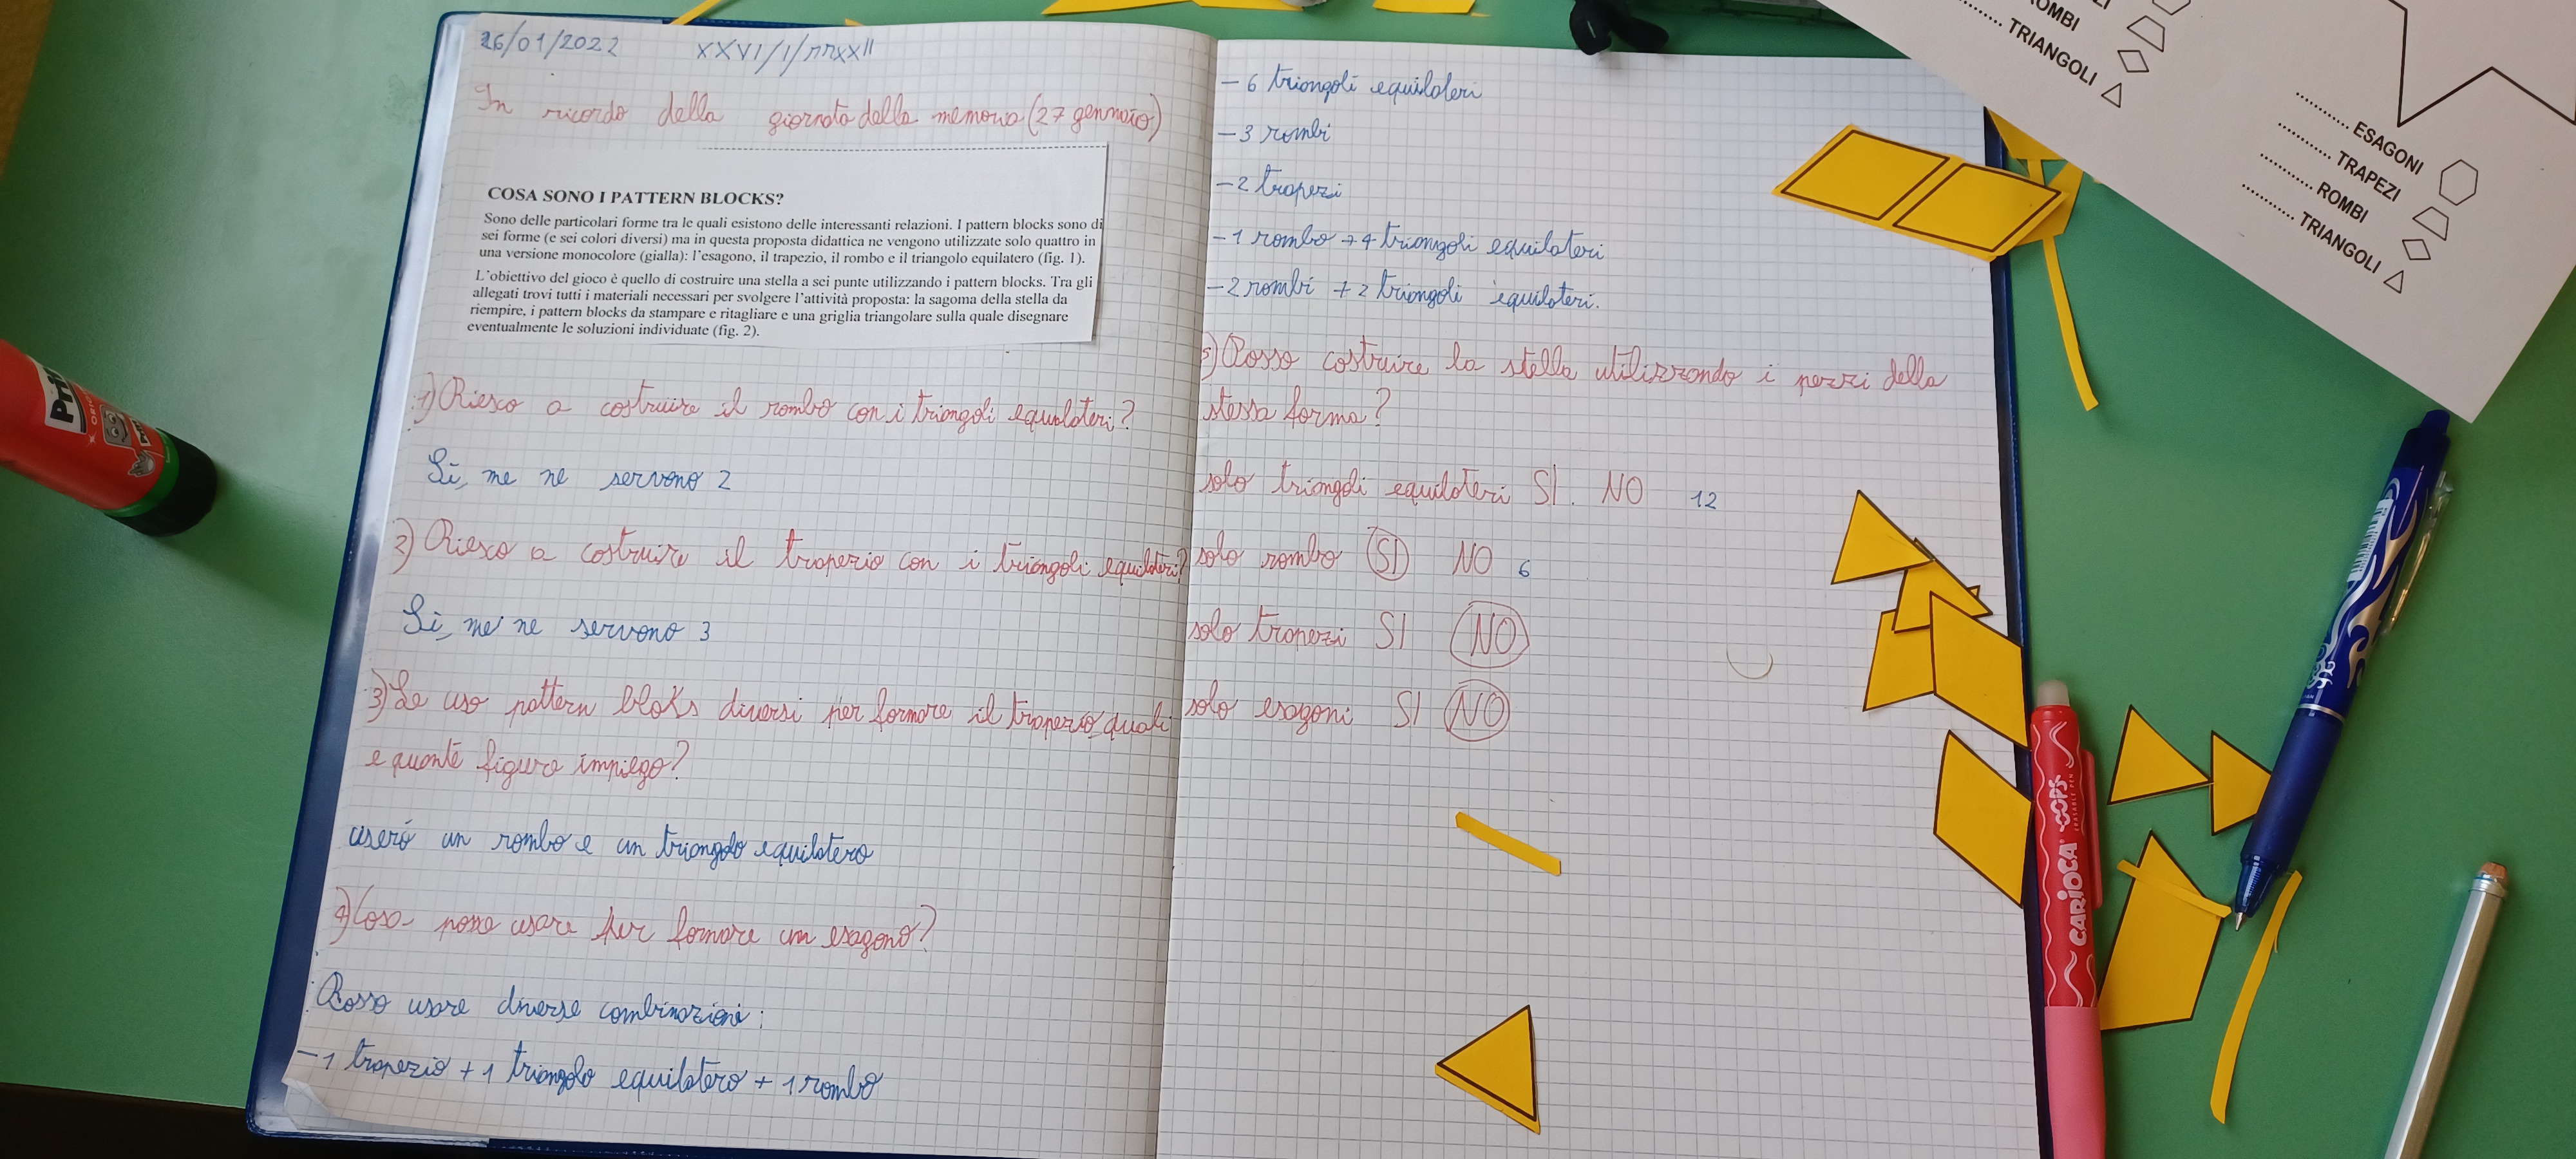 26/01/2022 XXVI/I/MMXXII
In ricordo della giornata della memoria (27 gennaio)
COSA SONO I PATTERN BLOCKS?
Sono delle particolari forme tra le quali esistono delle interessanti relazioni. I pattern blocks sono di
sei forme (e sei colori diversi) ma in questa proposta didattica ne vengono utilizzate solo quattro in
una versione monocolore (gialla): l'esagono, il trapezio, il rombo e il triangolo equilatero (fig. 1).
L'obiettivo del gioco è quello di costruire una stella a sei punte utilizzando i pattern blocks. Tra gli
allegati trovi tutti i materiali necessari per svolgere l'attività proposta: la sagoma della stella da
riempire, i pattern blocks da stampare e ritagliare e una griglia triangolare sulla quale disegnare
eventualmente le soluzioni individuate (fig. 2).
1) Riesco a costruire il rombo con i triangoli equilateri?
Sì, me ne servono 2
2) Riesco a costruire il trapezio con i triangoli equilateri?
Sì, me ne servono 3
3) Se uso pattern bloks diversi per formare il trapezio, quali
e quante figure impiego?
userò un rombo e un triangolo equilatero
4) Cosa posso usare per formare un esagono?
Posso usare diverse combinazioni:
- 1 trapezio + 1 triangolo equilatero + 1 rombo
- 6 triangoli equilateri
- 3 rombi
- 2 trapezi
- 1 rombo + 4 triangoli equilateri
- 2 rombi + 2 triangoli equilateri.
5) Posso costruire la stella utilizzando i pezzi della
stessa forma?
solo triangoli equilateri SI. NO 12
solo rombo SI NO 6
solo trapezi SI NO
solo esagoni SI NO
ROMBI
.......... TRIANGOLI
.......... ESAGONI
.......... TRAPEZI
.......... ROMBI
.......... TRIANGOLI
Prit
CARIOCA OOPS
ERASABLE PEN